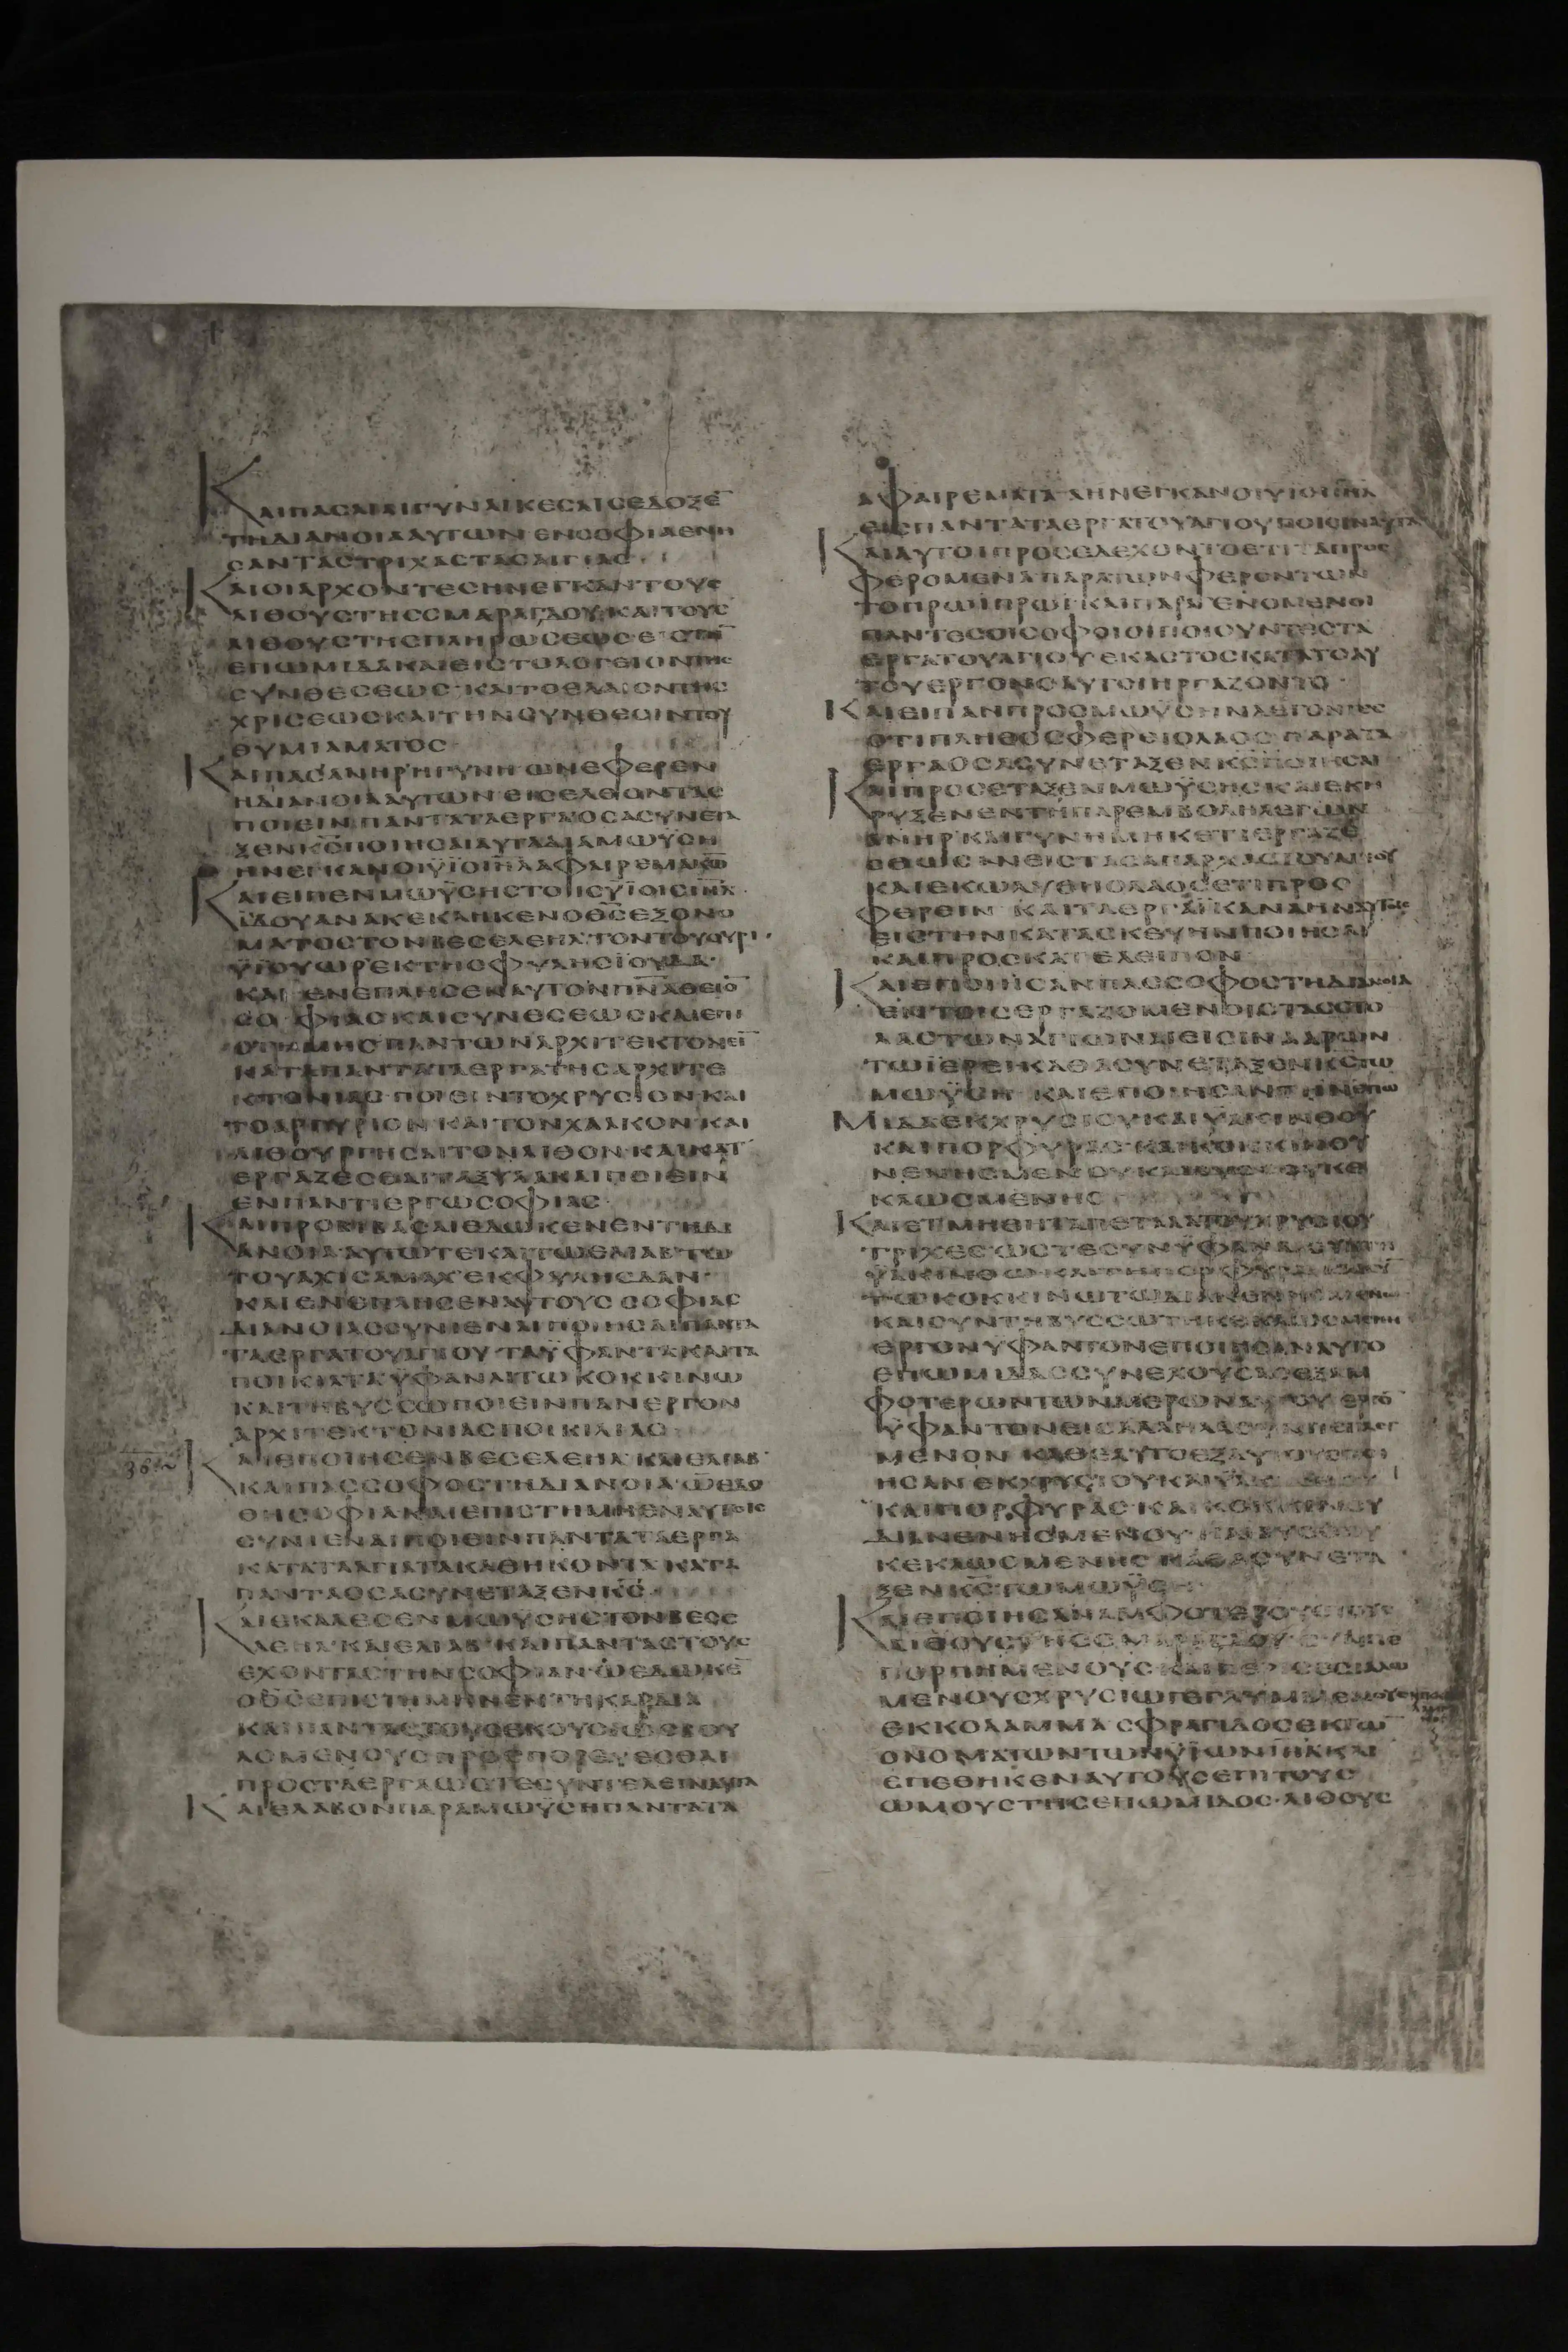 ΚΑΙΠΑСΑΙΑΙΓΥΝΑΙΚΕСΑΙСΕΔΟΞΕ̅
ΤΗΔΙΑΝΟΙΑΑΥΤΩΝΕΝСΟΦΙΑΕΝΗ
САΝΤΑСΤΡΙΧΑСΤΑСΑΙΓΙΑС·
ΚΑΙΟΙΑΡΧΟΝΤΕСΗΝΕΓΚΑΝΤΟΥС
ΛΙΘΟΥСΤΗССΜΑΡΑΓΔΟΥ·ΚΑΙΤΟΥС
ΛΙΘΟΥСΤΗСΠΛΗΡΩСΕΩСΕΙСΤΗ̅
ΕΠΩΜΙΔΑΚΑΙΕΙСΤΟΛΟΓΕΙΟΝΤΗС
СΥΝΘΕСΕΩС·ΚΑΙΤΟΕΛΑΙΟΝΤΗС
ΧΡΙСΕΩСΚΑΙΤΗΝСΥΝΘΕСΙΝΤΟΥ
ΘΥΜΙΑΜΑΤΟС
ΚΑΙΠΑСΑΝΗΡΗΓΥΝΗΩΝΕΦΕΡΕΝ
ΗΔΙΑΝΟΙΑΑΥΤΩΝΕΙСΕΛΘΟΝΤΑС
ΠΟΙΕΙΝΠΑΝΤΑΤΑΕΡΓΑΟСΑСΥΝΕΤΑ
ΞΕΝΚ̅С̅ΠΟΙΗСΑΙΑΥΤΑΔΙΑΜΩΫСΗ
ΗΝΕΓΚΑΝΟΙΫΙΟΙΙ̅Η̅Λ̅ΑΦΑΙΡΕΜΑΚ̅Ω̅
ΚΑΙΕΙΠΕΝΜΩΫСΗСΤΟΙСΫΙΟΙСΙ̅Η̅Λ̅·
ΪΔΟΥΑΝΑΚΕΚΛΗΚΕΝΟΘ̅С̅ΕΞΟΝΟ
ΜΑΤΟСΤΟΝΒΕСΕΛΕΗΛ·ΤΟΝΤΟΥΟΥΡΙ·
ΫΙΟΥΩΡΕΚΤΗСΦΥΛΗСΪΟΥΔΑ·
ΚΑΙΕΝΕΠΛΗСΕΝΑΥΤΟΝΠ̅Ν̅Α̅ΘΕΙΟ̅
СΟΦΙΑСΚΑΙСΥΝΕСΕΩСΚΑΙΕΠΙ
СΤΗΜΗСΠΑΝΤΩΝΑΡΧΙΤΕΚΤΟΝΕΙ̅
ΚΑΤΑΠΑΝΤΑΤΑΕΡΓΑΤΗСΑΡΧΙΤΕ
ΚΤΟΝΙΑС·ΠΟΙΕΙΝΤΟΧΡΥСΙΟΝΚΑΙ
ΤΟΑΡΓΥΡΙΟΝΚΑΙΤΟΝΧΑΛΚΟΝ·ΚΑΙ
ΛΙΘΟΥΡΓΗСΑΙΤΟΝΛΙΘΟΝ·ΚΑΙΚΑΤ
ΕΡΓΑΖΕСΘΑΙΤΑΞΥΛΑΚΑΙΠΟΙΕΙΝ
ΕΝΠΑΝΤΙΕΡΓΩСΟΦΙΑС·
ΚΑΙΠΡΟΒΙΒΑСΑΙΕΔΩΚΕΝΕΝΤΗΔΙ
ΑΝΟΙΑ·ΑΥΤΩΤΕΚΑΙΤΩΕΛΙΑΒΤΩ
ΤΟΥΑΧΙСΑΜΑΧΕΚΦΥΛΗСΔΑΝ·
ΚΑΙΕΝΕΠΛΗСΕΝΑΥΤΟΥССΟΦΙΑС
ΔΙΑΝΟΙΑССΥΝΙΕΝΑΙΠΟΙΗСΑΙΠΑΝΤΑ
ΤΑΕΡΓΑΤΟΥΑΓΙΟΥ·ΤΑΫΦΑΝΤΑΚΑΙΤΑ
ΠΟΙΚΙΛΤΑΫΦΑΝΑΙΤΩΚΟΚΚΙΝΩ
ΚΑΙΤΗΒΥССΩΠΟΙΕΙΝΠΑΝΕΡΓΟΝ
ΑΡΧΙΤΕΚΤΟΝΙΑСΠΟΙΚΙΛΙΑС
ΚΑΙΕΠΟΙΗСΕΝΒΕСΕΛΕΗΛ·ΚΑΙΕΛΙΑΒ·
ΚΑΙΠΑССΟΦΟСΤΗΔΙΑΝΟΙΑ·ΩΕΔΟ
ΘΗСΟΦΙΑΚΑΙΕΠΙСΤΗΜΗΕΝΑΥΤΟΙС
СΥΝΙΕΝΑΙΠΟΙΕΙΝΠΑΝΤΑΤΑΕΡΓΑ
ΚΑΤΑΤΑΑΓΙΑΤΑΚΑΘΗΚΟΝΤΑΚΑΤΑ
ΠΑΝΤΑΟСΑСΥΝΕΤΑΞΕΝΚ̅С̅
ΚΑΙΕΚΑΛΕСΕΝΜΩΥСΗСΤΟΝΒΕСΕ
ΛΕΗΛ·ΚΑΙΕΛΙΑΒ·ΚΑΙΠΑΝΤΑСΤΟΥС
ΕΧΟΝΤΑСΤΗΝСΟΦΙΑΝ·ΩΕΔΩΚΕ̅
ΟΘ̅С̅ΕΠΙСΤΗΜΗΝΕΝΤΗΚΑΡΔΙΑ
ΚΑΙΠΑΝΤΑСΤΟΥСΕΚΟΥСΙΩСΒΟΥ
ΛΟΜΕΝΟΥСΠΡΟСΠΟΡΕΥΕСΘΑΙ
ΠΡΟСΤΑΕΡΓΑΩСΤΕСΥΝΤΕΛΕΙΝΑΥΤΑ
ΚΑΙΕΛΑΒΟΝΠΑΡΑΜΩΫСΗΠΑΝΤΑΤΑ
ΑΦΑΙΡΕΜΑΤΑΑΗΝΕΓΚΑΝΟΙΥΙΟΙΙ̅Η̅Λ̅
ΕΙСΠΑΝΤΑΤΑΕΡΓΑΤΟΥΑΓΙΟΥΠΟΙΕΙΝΑΥΤΑ
ΚΑΙΑΥΤΟΙΠΡΟСΕΔΕΧΟΝΤΟΕΤΙΤΑΠΡΟС
ΦΕΡΟΜΕΝΑΠΑΡΑΤΩΝΦΕΡΟΝΤΩΝ
ΤΟΠΡΩΙΠΡΩΙ·ΚΑΙΠΑΡΕΓΕΝΟΜΕΝΟΙ
ΠΑΝΤΕСΟΙСΟΦΟΙΟΙΠΟΙΟΥΝΤΕСΤΑ
ΕΡΓΑΤΟΥΑΓΙΟΥΕΚΑСΤΟСΚΑΤΑΤΟΑΥ
ΤΟΥΕΡΓΟΝΟΑΥΤΟΙΗΡΓΑΖΟΝΤΟ·
ΚΑΙΕΙΠΑΝΠΡΟСΜΩΫСΗΝΛΕΓΟΝΤΕС
ΟΤΙΠΛΗΘΟСΦΕΡΕΙΟΛΑΟСΠΑΡΑΤΑ
ΕΡΓΑΟСΑСΥΝΕΤΑΞΕΝΚ̅С̅ΠΟΙΗСΑΙ
ΚΑΙΠΡΟСΕΤΑΞΕΝΜΩΫСΗСΚΑΙΕΚΗ
ΡΥΞΕΝΕΝΤΗΠΑΡΕΜΒΟΛΗΛΕΓΩΝ
ΑΝΗΡΚΑΙΓΥΝΗΜΗΚΕΤΙΕΡΓΑΖΕ
СΘΩСΑΝΕΙСΤΑСΑΠΑΡΧΑСΤΟΥΑΓΙΟΥ
ΚΑΙΕΚΩΛΥΘΗΟΛΑΟСΕΤΙΠΡΟС
ΦΕΡΕΙΝ·ΚΑΙΤΑΕΡΓΑΗΝΙΚΑΝΑΑΥΤΟΙС
ΕΙСΤΗΝΚΑΤΑСΚΕΥΗΝΠΟΙΗСΑΙ
ΚΑΙΠΡΟСΚΑΤΕΛΕΙΠΟΝ
ΚΑΙΕΠΟΙΗСΑΝΠΑССΟΦΟСΤΗΔΙΑΝΟΙΑ
ΕΝΤΟΙСΕΡΓΑΖΟΜΕΝΟΙСΤΑССΤΟ
ΛΑСΤΩΝΑΓΙΩΝΑΙΕΙСΙΝΑΑΡΩΝ
ΤΩΙΕΡΕΙΚΑΘΑСΥΝΕΤΑΞΕΝΚ̅С̅ΤΩ
ΜΩΫСΗ·ΚΑΙΕΠΟΙΗСΑΝΤΗΝΕΠΩ
ΜΙΔΑΕΚΧΡΥСΙΟΥΚΑΙΫΑΚΙΝΘΟΥ
ΚΑΙΠΟΡΦΥΡΑС·ΚΑΙΚΟΚΚΙΝΟΥ
ΝΕΝΗСΜΕΝΟΥΚΑΙΒΥССΟΥΚΕ
ΚΛΩСΜΕΝΗС
ΚΑΙΕΤΜΗΘΗΤΑΠΕΤΑΛΑΤΟΥΧΡΥСΙΟΥ
ΤΡΙΧΕСΩСΤΕСΥΝΫΦΑΝΑΙСΥΝΤΗ
ΫΑΚΙΝΘΩ·ΚΑΙΤΗΠΟΡΦΥΡΑ
ΤΩΚΟΚΚΙΝΩΤΩΔΙΑΝΕΝΗСΜΕΝΩ
ΚΑΙСΥΝΤΗΒΥССΩΤΗΚΕΚΛΩСΜΕΝΗ
ΕΡΓΟΝΥΦΑΝΤΟΝΕΠΟΙΗСΑΝΑΥΤΟ
ΕΠΩΜΙΔΑССΥΝΕΧΟΥСΑСΕΞΑΜ
ΦΟΤΕΡΩΝΤΩΝΜΕΡΩΝΑΥΤΟΥΕΡΓΟ̅
ΫΦΑΝΤΟΝΕΙСΑΛΛΗΛΑСΥΝΠΕΠΛΕΓ
ΜΕΝΟΝ·ΚΑΘΕΑΥΤΟΕΞΑΥΤΟΥΕΠΟΙ
ΗСΑΝΕΚΧΡΥСΙΟΥΚΑΙΫΑΚΙΝΘΟΥ
ΚΑΙΠΟΡΦΥΡΑС·ΚΑΙΚΟΚΚΙΝΟΥ
ΔΙΑΝΕΝΗСΜΕΝΟΥ·ΚΑΙΒΥССΟΥ
ΚΕΚΛΩСΜΕΝΗС·ΚΑΘΑСΥΝΕΤΑ
ΞΕΝΚ̅С̅ΤΩΜΩΫСΗ·
ΚΑΙΕΠΟΙΗСΑΝΑΜΦΟΤΕΡΟΥСΤΟΥС
ΛΙΘΟΥСΤΗССΜΑΡΑΓΔΟΥСΥΜΠΕ
ΠΟΡΠΗΜΕΝΟΥСΚΑΙΠΕΡΙСΕСΙΑΛΩ
ΜΕΝΟΥСΧΡΥСΙΩΓΕΓΛΥΜΜΕΝΟΥС
ΕΚΚΟΛΑΜΜΑСΦΡΑΓΙΔΟСΕΚΤΩ̅
ΟΝΟΜΑΤΩΝΤΩΝΫΙΩΝΙ̅Η̅Λ̅ΚΑΙ
ΕΠΕΘΗΚΕΝΑΥΤΟΥСΕΠΙΤΟΥС
ΩΜΟΥСΤΗСΕΠΩΜΙΔΟС·ΛΙΘΟΥС